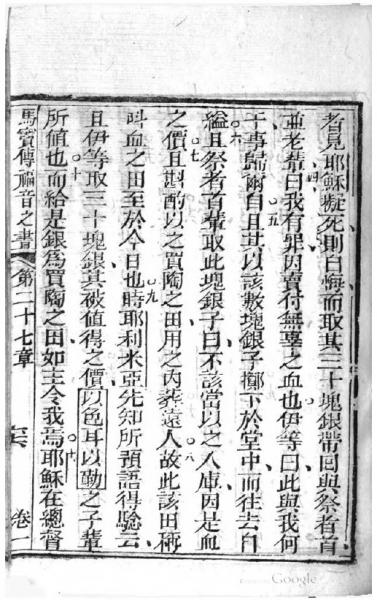 者見耶穌擬死則自悔而取其三十塊銀帶回與祭者首
並老輩曰我有罪因賣付無辜之血也伊等曰此與我何
干事歸爾自且其以該數塊銀子擲下於堂中而往去自
縊且祭者首輩取此塊銀子曰不該當以之入庫因是血
之價且斟酌以之買陶之田用之內葬遠人故此該田稱
叫血之田至於今日也時耶利米亞先知所預語得驗云
且伊等取三十塊銀其被值得之價以色耳以勒之子輩
所值也而給是銀為買陶之田如主令我焉耶穌在總督
馬竇傳福音之書 第二十七章 卷一
四
五
六
七
八
九
十
Google